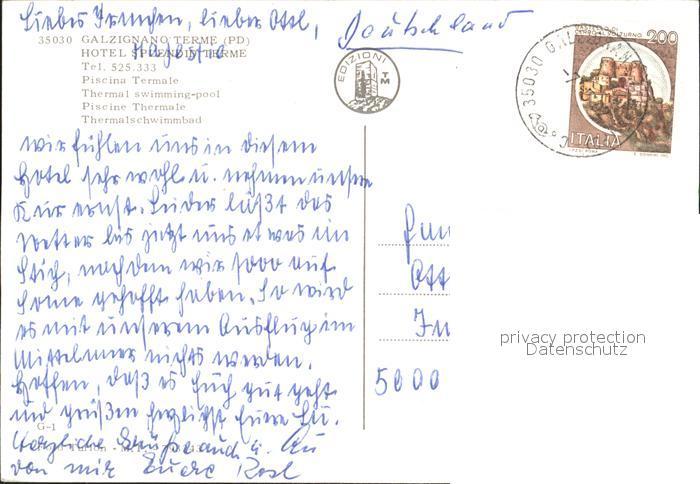 Liebes Irmchen, lieber Ottl,
Deutschland
35030 GALZIGNANO TERME (PD)
HOTEL SPLENDID TERME
Tel. 525.333
Piscina Termale
Thermal swimming-pool
Piscine Thermale
Thermalschwimmbad
EDIZIONI
TM
35030 GALZIGNANO
200
ITALIA
wir fühlen uns in diesem
Hotel sehr wohl u. nehmen unsere
Kur ernst. Leider läßt das
Wetter bis jetzt uns etwas im
Stich, nachdem wir sooo auf
Sonne gehofft haben. So wird
es mit unserem Ausflug im
Mittelmeer nichts werden.
Hoffen, daß es Euch gut geht
und grüßen herzlichst Eure
Herzliche Grüße auch
von mir Eure Rosl
G-1
Ott
5000
privacy protection
Datenschutz